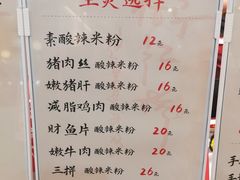 主食选择
素酸辣米粉 12元
猪肉丝 酸辣米粉 16元
嫩猪肝 酸辣米粉 16元
减脂鸡肉 酸辣米粉 16元
财鱼片 酸辣米粉 20元
嫩牛肉 酸辣米粉 20元
三拼 酸辣米粉 26元